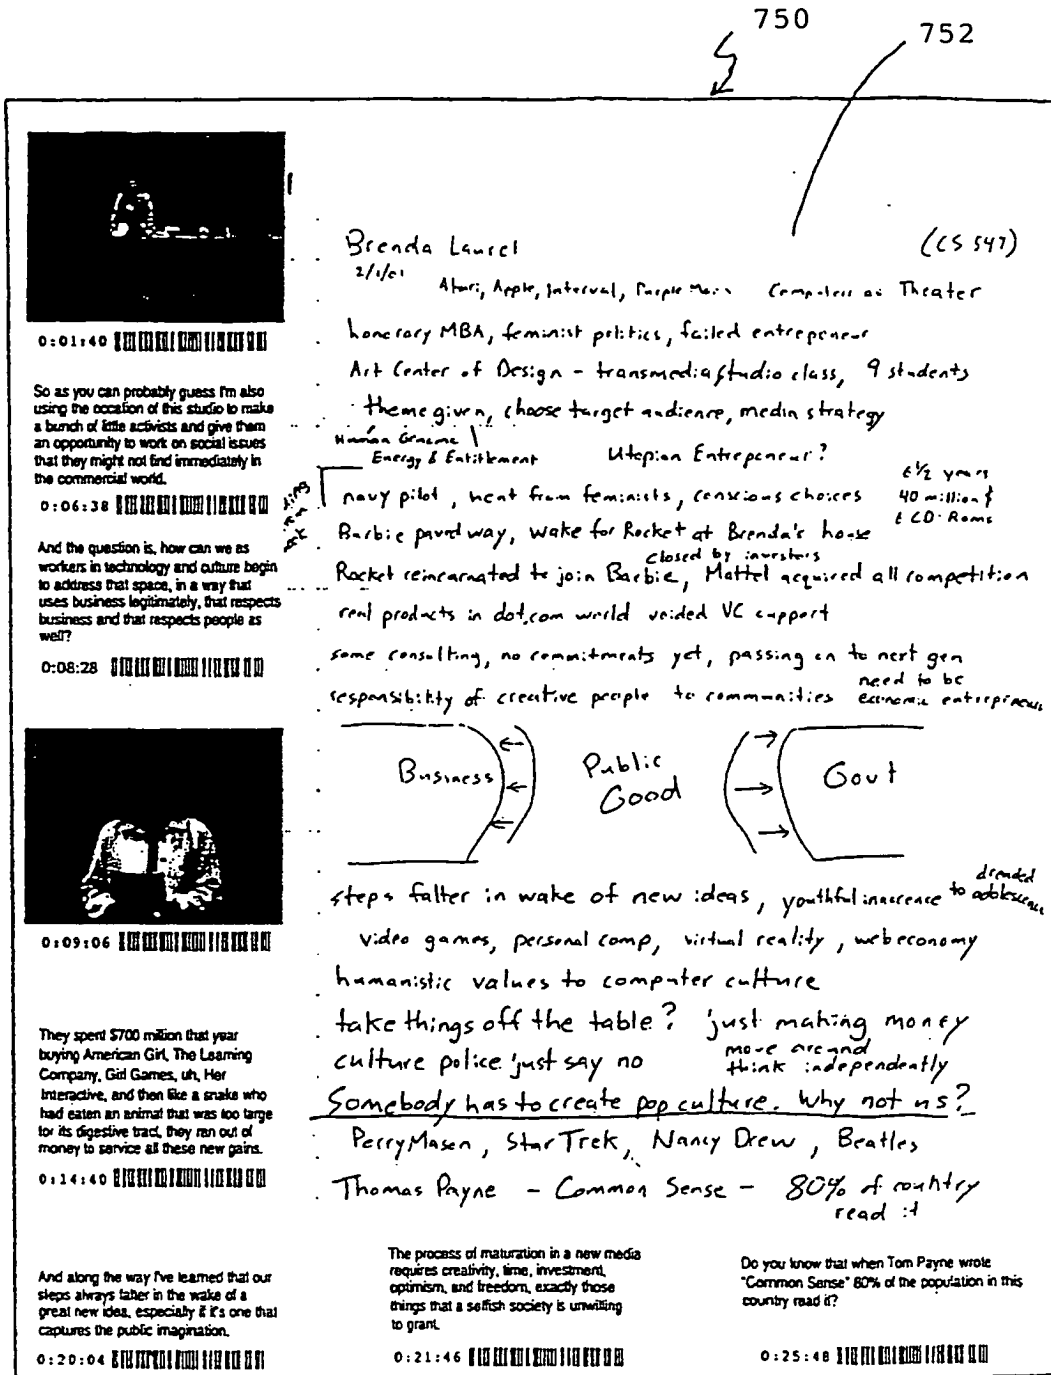 750
752
0:01:40
So as you can probably guess I'm also
using the occation of this studio to make
a bunch of little activists and give them
an opportunity to work on social issues
that they might not find immediately in
the commercial world.
0:06:38
And the question is, how can we as
workers in technology and culture begin
to address that space, in a way that
uses business legitimately, that respects
business and that respects people as
well?
0:08:28
0:09:06
They spent $700 million that year
buying American Girl, The Learning
Company, Girl Games, uh, Her
Interactive, and then like a snake who
had eaten an animal that was too large
for its digestive tract, they ran out of
money to service all these new gains.
0:14:40
And along the way I've learned that our
steps always falter in the wake of a
great new idea, especially if it's one that
captures the public imagination.
0:20:04
Brenda Laurel (CS 547)
2/1/01
Atari, Apple, Interval, Purple Moon Computers as Theater
honorary MBA, feminist politics, failed entrepeneur
Art Center of Design - transmedia studio class, 9 students
theme given, choose target audience, media strategy
Human Genome
Energy & Entitlement Utopian Entrepeneur?
6 1/2 years
navy pilot, heat from feminists, conscious choices 40 million $
6 CD-Roms
Barbie paved way, wake for Rocket at Brenda's house
closed by investors
Rocket reincarnated to join Barbie, Mattel acquired all competition
real products in dot.com world voided VC support
some consulting, no commitments yet, passing on to next gen
responsibility of creative people to communities need to be
economic entrepreneurs
Business Public Good Govt
steps falter in wake of new ideas, youthful innocence to dreaded adolescence
video games, personal comp, virtual reality, web economy
humanistic values to computer culture
take things off the table? just making money
culture police 'just say no move around
think independently
Somebody has to create pop culture. Why not us?
Perry Mason, Star Trek, Nancy Drew, Beatles
Thomas Payne - Common Sense - 80% of country
read it
The process of maturation in a new media
requires creativity, time, investment,
optimism, and freedom, exactly those
things that a selfish society is unwilling
to grant.
0:21:46
Do you know that when Tom Payne wrote
"Common Sense" 80% of the population in this
country read it?
0:25:48